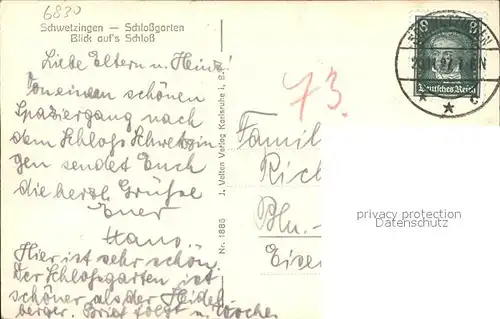 6830
Schwetzingen — Schloßgarten
Blick auf's Schloß
Liebe Eltern u. Heinz!
Von einem schönen
Spaziergang nach
dem Schloss Schwetzin
gen sendet Euch
die herzl. Grüsse
Euer
Hans.
Hier ist sehr schön.
Der Schlossgarten ist
schöner als der Heidel
berger. Brief folgt u.
J. Velten Verlag Karlsruhe i. B.
Nr. 1885
73.
Deutsches Reich
Famili
Rich
Bln.-
Eisen
privacy protection
Datenschutz